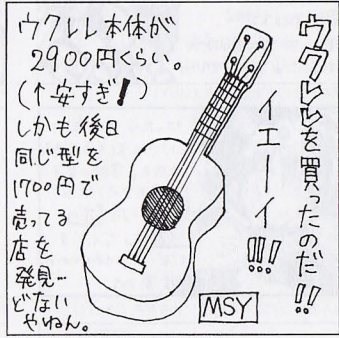 ウクレレを買ったのだ!!
イエーイ!!!
ウクレレ本体が
2900円くらい。
(↑安すぎ!)
しかも後日
同じ型を
1700円で
売ってる
店を
発見…
どない
やねん。
MSY